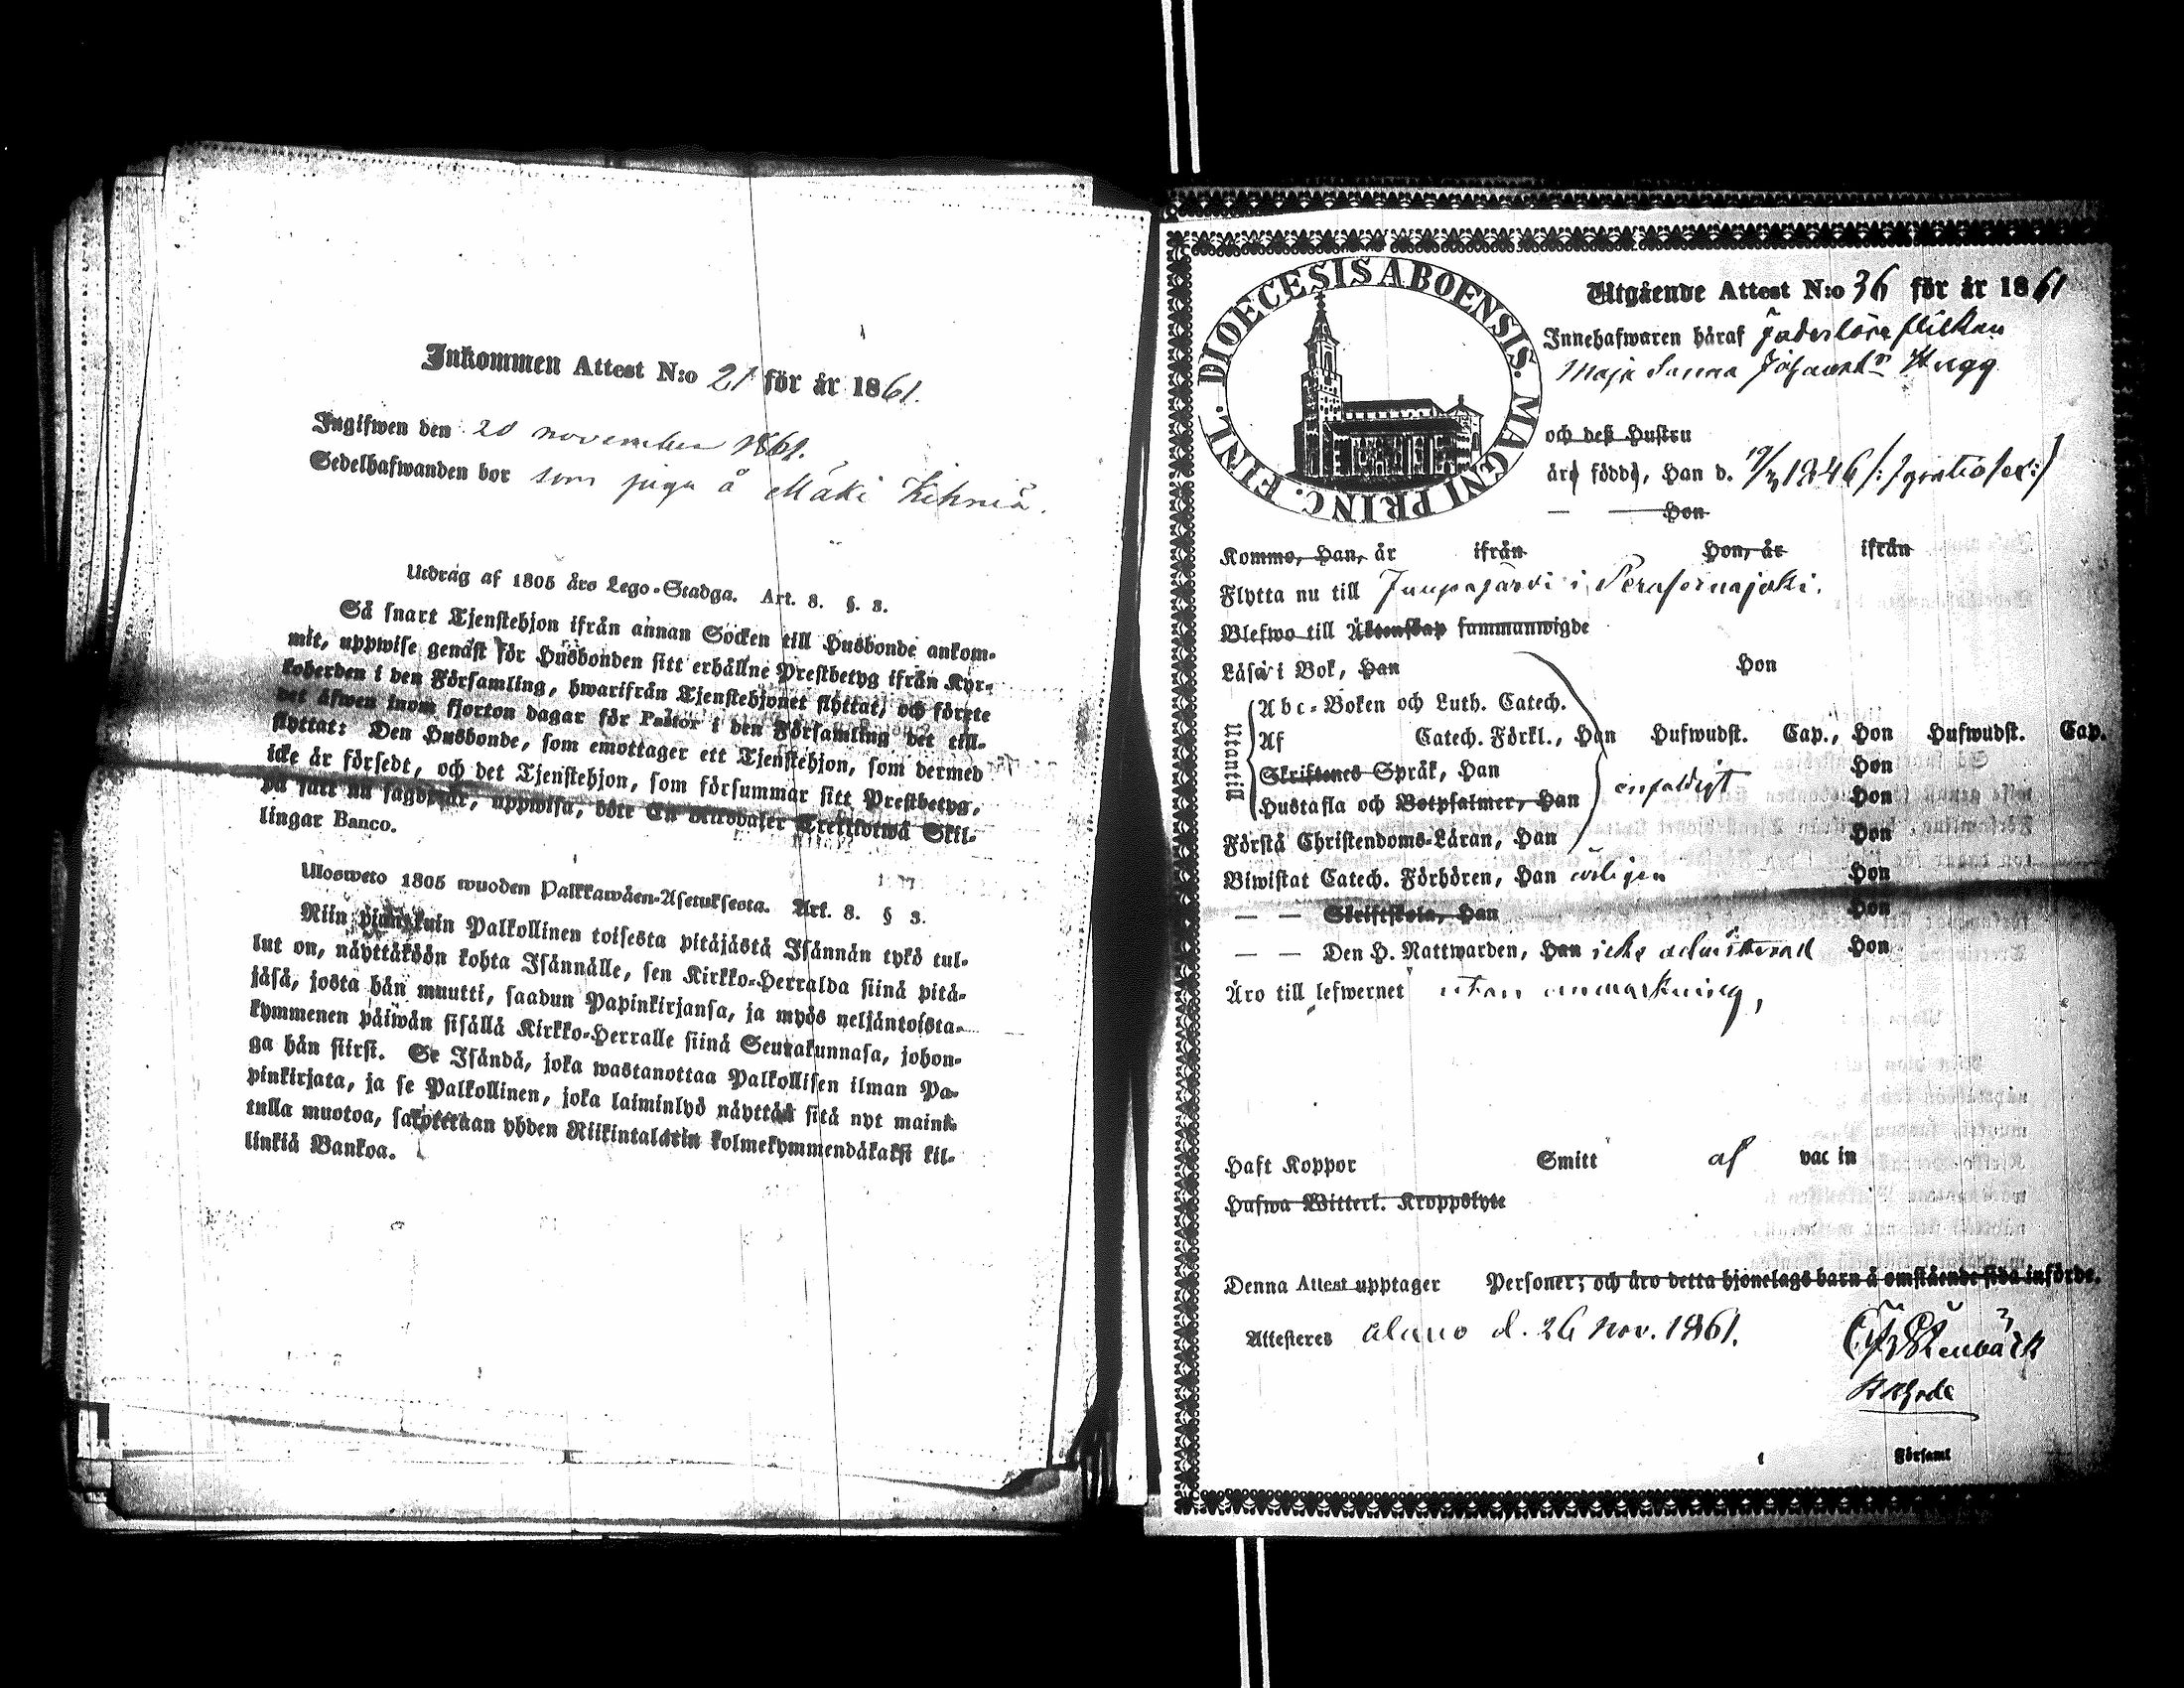 Inkommen Attest N:o 21 för år 1861.
Ingifwen den 20 november 1861.
Sedelhafwanden bor som piga å Mäki Kihniä.
Utdrag af 1805 års Lego-Stadga. Art. 8. §. 3.
Så snart Tjenstehjon ifrån annan Socken till Husbonde ankom-
mit, uppwise genast för Husbonden sitt erhållne Prestbetyg ifrån Kyr-
koherden i den Församling, hwarifrån Tjenstehjonet flyttat, och förete
det äfwen inom fjorton dagar för Pastor i den Församling det till-
flyttat: Den Husbonde, som emottager ett Tjenstehjon, som dermed
icke är försedt, och det Tjenstehjon, som försummar sitt Prestbetyg,
på sätt nu sagdt är, uppwisa, böte En Riksdaler Trettiotwå Skil-
lingar Banco.
Ulosweto 1805 wuoden Palkkawäen-Asetuksesta. Art. 8. § 3.
Niin pian kuin Palkollinen toisesta pitäjästä Isännän tykö tul-
lut on, näyttäköön kohta Isännälle, sen Kirkko-Herralda siinä pitä-
jäsä, josta hän muutti, saadun Papinkirjansa, ja myös neljäntoista-
kymmenen päiwän sisällä Kirkko-Herralle siinä Seurakunnasa, johon-
ga hän siirsi. Se Isändä, joka wastanottaa Palkollisen ilman Pa-
pinkirjata, ja se Palkollinen, joka laiminlyö näyttää sitä nyt maini-
tulla muotoa, sakotetaan yhden Riikintalarin kolmekymmendäkaksi kil-
linkiä Bankoa.
DIOECESIS ABOENSIS. MAGNI PRINC. FINL.
Utgående Attest N:o 36 för år 1861
Innehafwaren häraf Faderlösa flickan
Maja Sanna Johansdr Hugg
och deß Hustru
är född, Han d. 1846
— Hon
Komme, Han, år ifrån Hon, år ifrån
Flytta nu till Juupajärvi i Peräseinäjoki.
Blefwo till Äktenskap sammanwigde
Läsa i Bok, Han Hon
Utantill
Abc-Boken och Luth. Catech.
Af Catech. Förkl., Han Hufwudst. Cap., Hon Hufwudst. Cap.
Skriftenes Språk, Han Hon
Hustafla och Botpsalmer, Han enfaldigt Hon
Förstå Christendoms-Läran, Han Hon
Biwistat Catech. Förhören, Han årligen Hon
— — Skriftskola, Han Hon
— — Den H. Nattwarden, Han icke admitterad Hon
Äro till lefwernet utan anmärkning,
Haft Koppor Smitt af vac in
Hafwa Witterl. Kroppslyte
Denna Attest upptager Personer; och äro detta hjonelags barn å omstående sida införde.
Attesteres Alavo d. 26 Nov. 1861.
Stenbäck
Khrde
i Församl